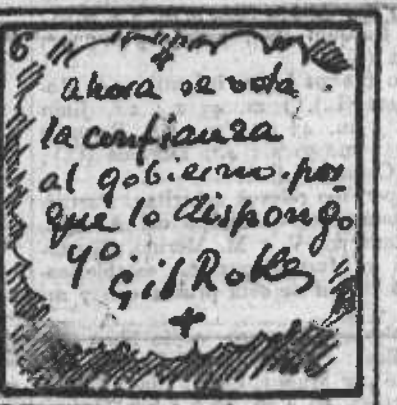 6
ahora se vota
la confianza
al gobierno. por
que lo dispongo
yo.
Gil Robles